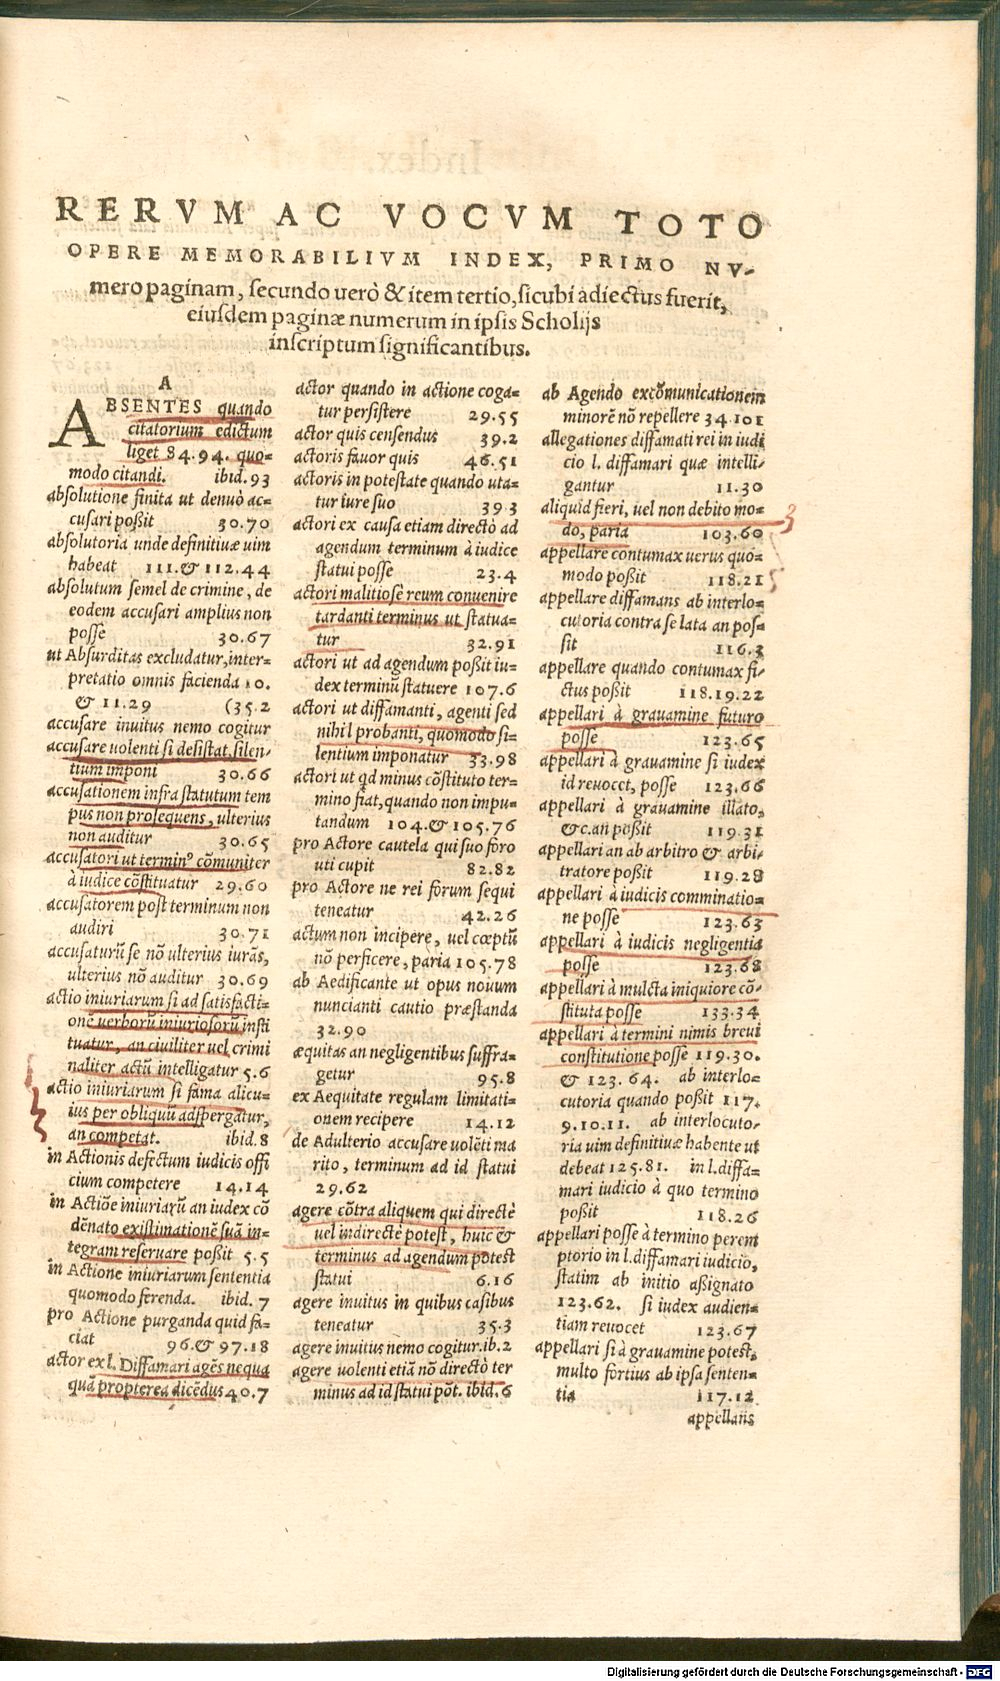 RERVM AC VOCVM TOTO
OPERE MEMORABILIVM INDEX, PRIMO NV-
mero paginam, secundo uerò & item tertio, sicubi adiectus fuerit,
eiusdem paginæ numerum in ipsis Scholijs
inscriptum significantibus.
A
ABSENTES quando
citatorium edictum
liget 84.94. quo-
modo citandi. ibid.93
absolutione finita ut denuò ac-
cusari poßit 30.70
absolutoria unde definitiuæ uim
habeat 111.& 112.44
absolutum semel de crimine, de
eodem accusari amplius non
posse 30.67
ut Absurditas excludatur, inter-
pretatio omnis facienda 10.
& 11.29 (35.2
accusare inuitus nemo cogitur
accusare uolenti si desistat, silen-
tium imponi 30.66
accusationem infra statutum tem
pus non prosequens, ulterius
non auditur 30.65
accusatori ut terminꝰ cõmuniter
à iudice cõstituatur 29.60
accusatorem post terminum non
audiri 30.71
accusaturũ se nõ ulterius iurãs,
ulterius nõ auditur 30.69
actio iniuriarum si ad satisfacti-
onẽ uerborũ iniuriosorũ insti
tuatur, an ciuiliter uel crimi
naliter actũ intelligatur 5.6
actio iniuriarum si fama alicu-
ius per obliquũ adspergatur,
an competat. ibid.8
in Actionis defectum iudicis offi
cium competere 14.14
in Actiõe iniuriarũ an iudex cõ
dẽnato existimationẽ suã in-
tegram reseruare poßit 5.5
in Actione iniuriarum sententia
quomodo ferenda. ibid. 7
pro Actione purganda quid fa-
ciat 96.& 97.18
actor ex l. Diffamari agẽs nequa
quã propterea dicẽdus 40.7
actor quando in actione coga-
tur persistere 29.55
actor quis censendus 39.2
actoris fauor quis 46.51
actoris in potestate quando uta-
tur iure suo 39.3
actori ex causa etiam directò ad
agendum terminum à iudice
statui posse 23.4
actori malitiosè reum conuenire
tardanti terminus ut statua-
tur 32.91
actori ut ad agendum poßit iu-
dex terminũ statuere 107.6
actori ut diffamanti, agenti sed
nihil probanti, quomodo si-
lentium imponatur 33.98
actori ut qd minus cõstituto ter-
mino fiat, quando non impu-
tandum 104.& 105.76
pro Actore cautela qui suo foro
uti cupit 82.82
pro Actore ne rei forum sequi
teneatur 42.26
actum non incipere, uel cœptũ
nõ perficere, paria 105.78
ab Aedificante ut opus nouum
nuncianti cautio præstanda
32.90
æquitas an negligentibus suffra-
getur 95.8
ex Aequitate regulam limitati-
onem recipere 14.12
de Adulterio accusare uolẽti ma
rito, terminum ad id statui
29.62
agere cõtra aliquem qui directè
uel indirectè potest, huic &
terminus ad agendum potest
statui 6.16
agere inuitus in quibus casibus
teneatur 35.3
agere inuitus nemo cogitur. ib.2
agere uolenti etiã nõ directò ter
minus ad id statui põt. ibid.6
ab Agendo excõmunicationem
minorẽ nõ repellere 34.101
allegationes diffamati rei in iudi
cio l. diffamari quæ intelli-
gantur 11.30
aliquid fieri, uel non debito mo-
do, paria 103.60
appellare contumax uerus quo-
modo poßit 118.21
appellare diffamans ab interlo-
cutoria contra se lata an pos-
sit 116.3
appellare quando contumax fi-
ctus poßit 118.19.22
appellari à grauamine futuro
posse 123.65
appellari à grauamine si iudex
id reuocet, posse 123.66
appellari à grauamine illato,
&c. an poßit 119.31
appellari an ab arbitro & arbi-
tratore poßit 119.28
appellari à iudicis comminatio-
ne posse 123.63
appellari à iudicis negligentia
posse 123.68
appellari à mulcta iniquiore cõ-
stituta posse 133.34
appellari à termini nimis breui
constitutione posse 119.30.
& 123.64. ab interlo-
cutoria quando poßit 117.
9.10.11. ab interlocuto-
ria uim definitiuæ habente ut
debeat 125.81. in l. diffa-
mari iudicio à quo termino
poßit 118.26
appellari posse à termino perem
ptorio in l. diffamari iudicio,
statim ab initio aßignato
123.62. si iudex audien-
tiam reuocet 123.67
appellari si à grauamine potest,
multo fortius ab ipsa senten-
tia 117.12
appellans
Digitalisierung gefördert durch die Deutsche Forschungsgemeinschaft - DFG